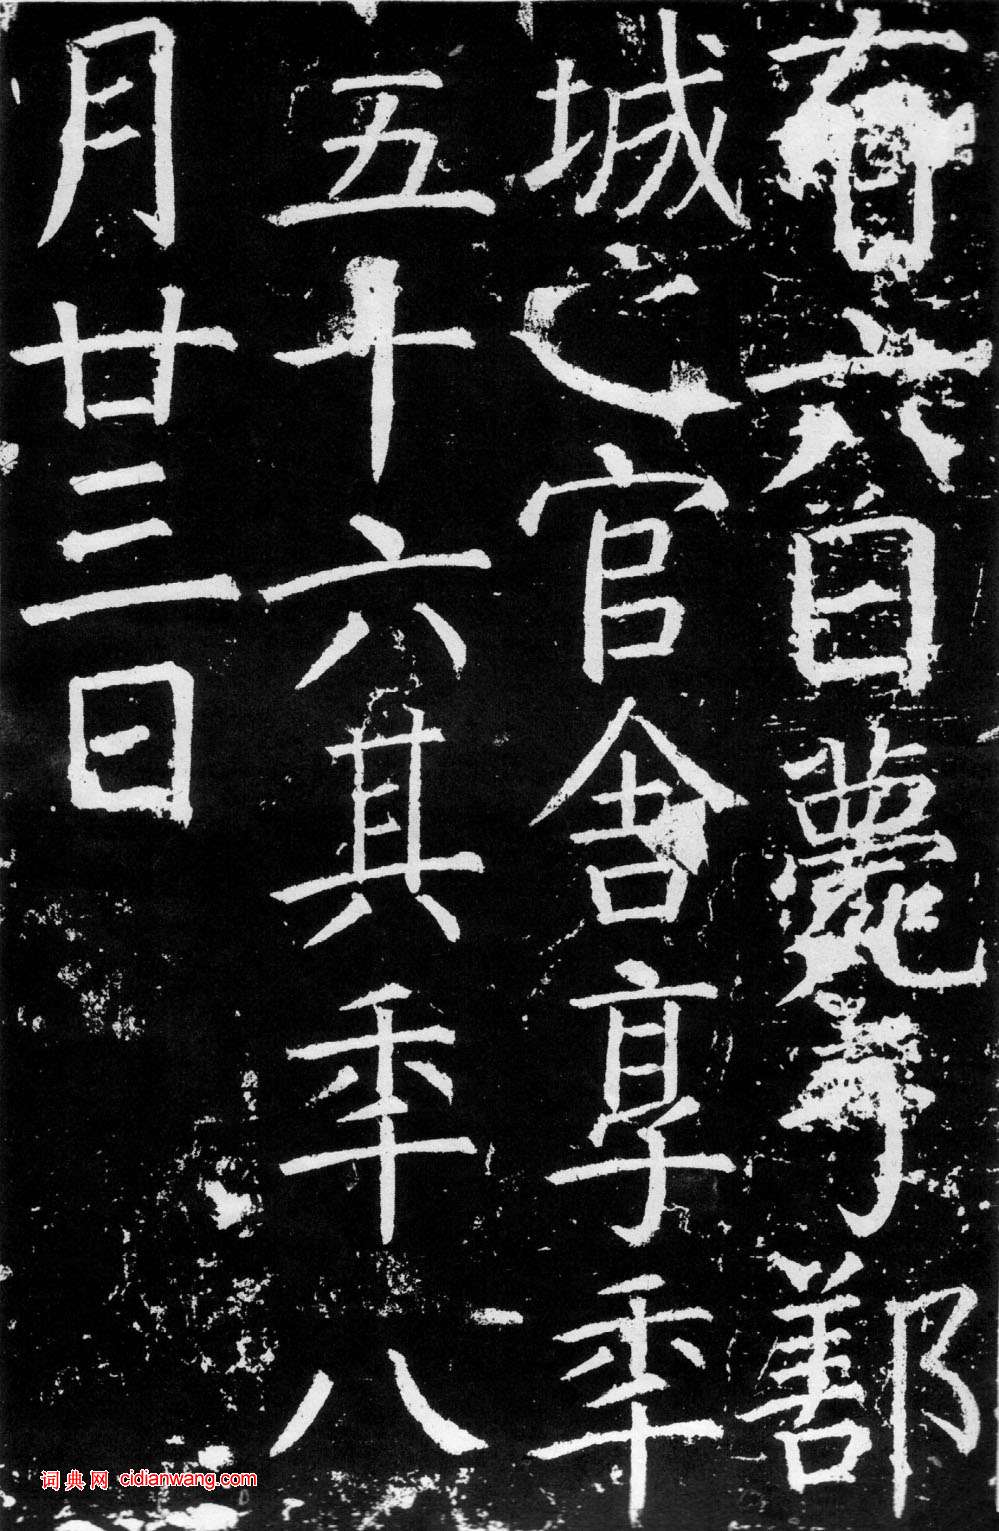 有六日薨于鄯
城之官舍享年
五十六其年八
月廿三日
词典网 cidianwang.com